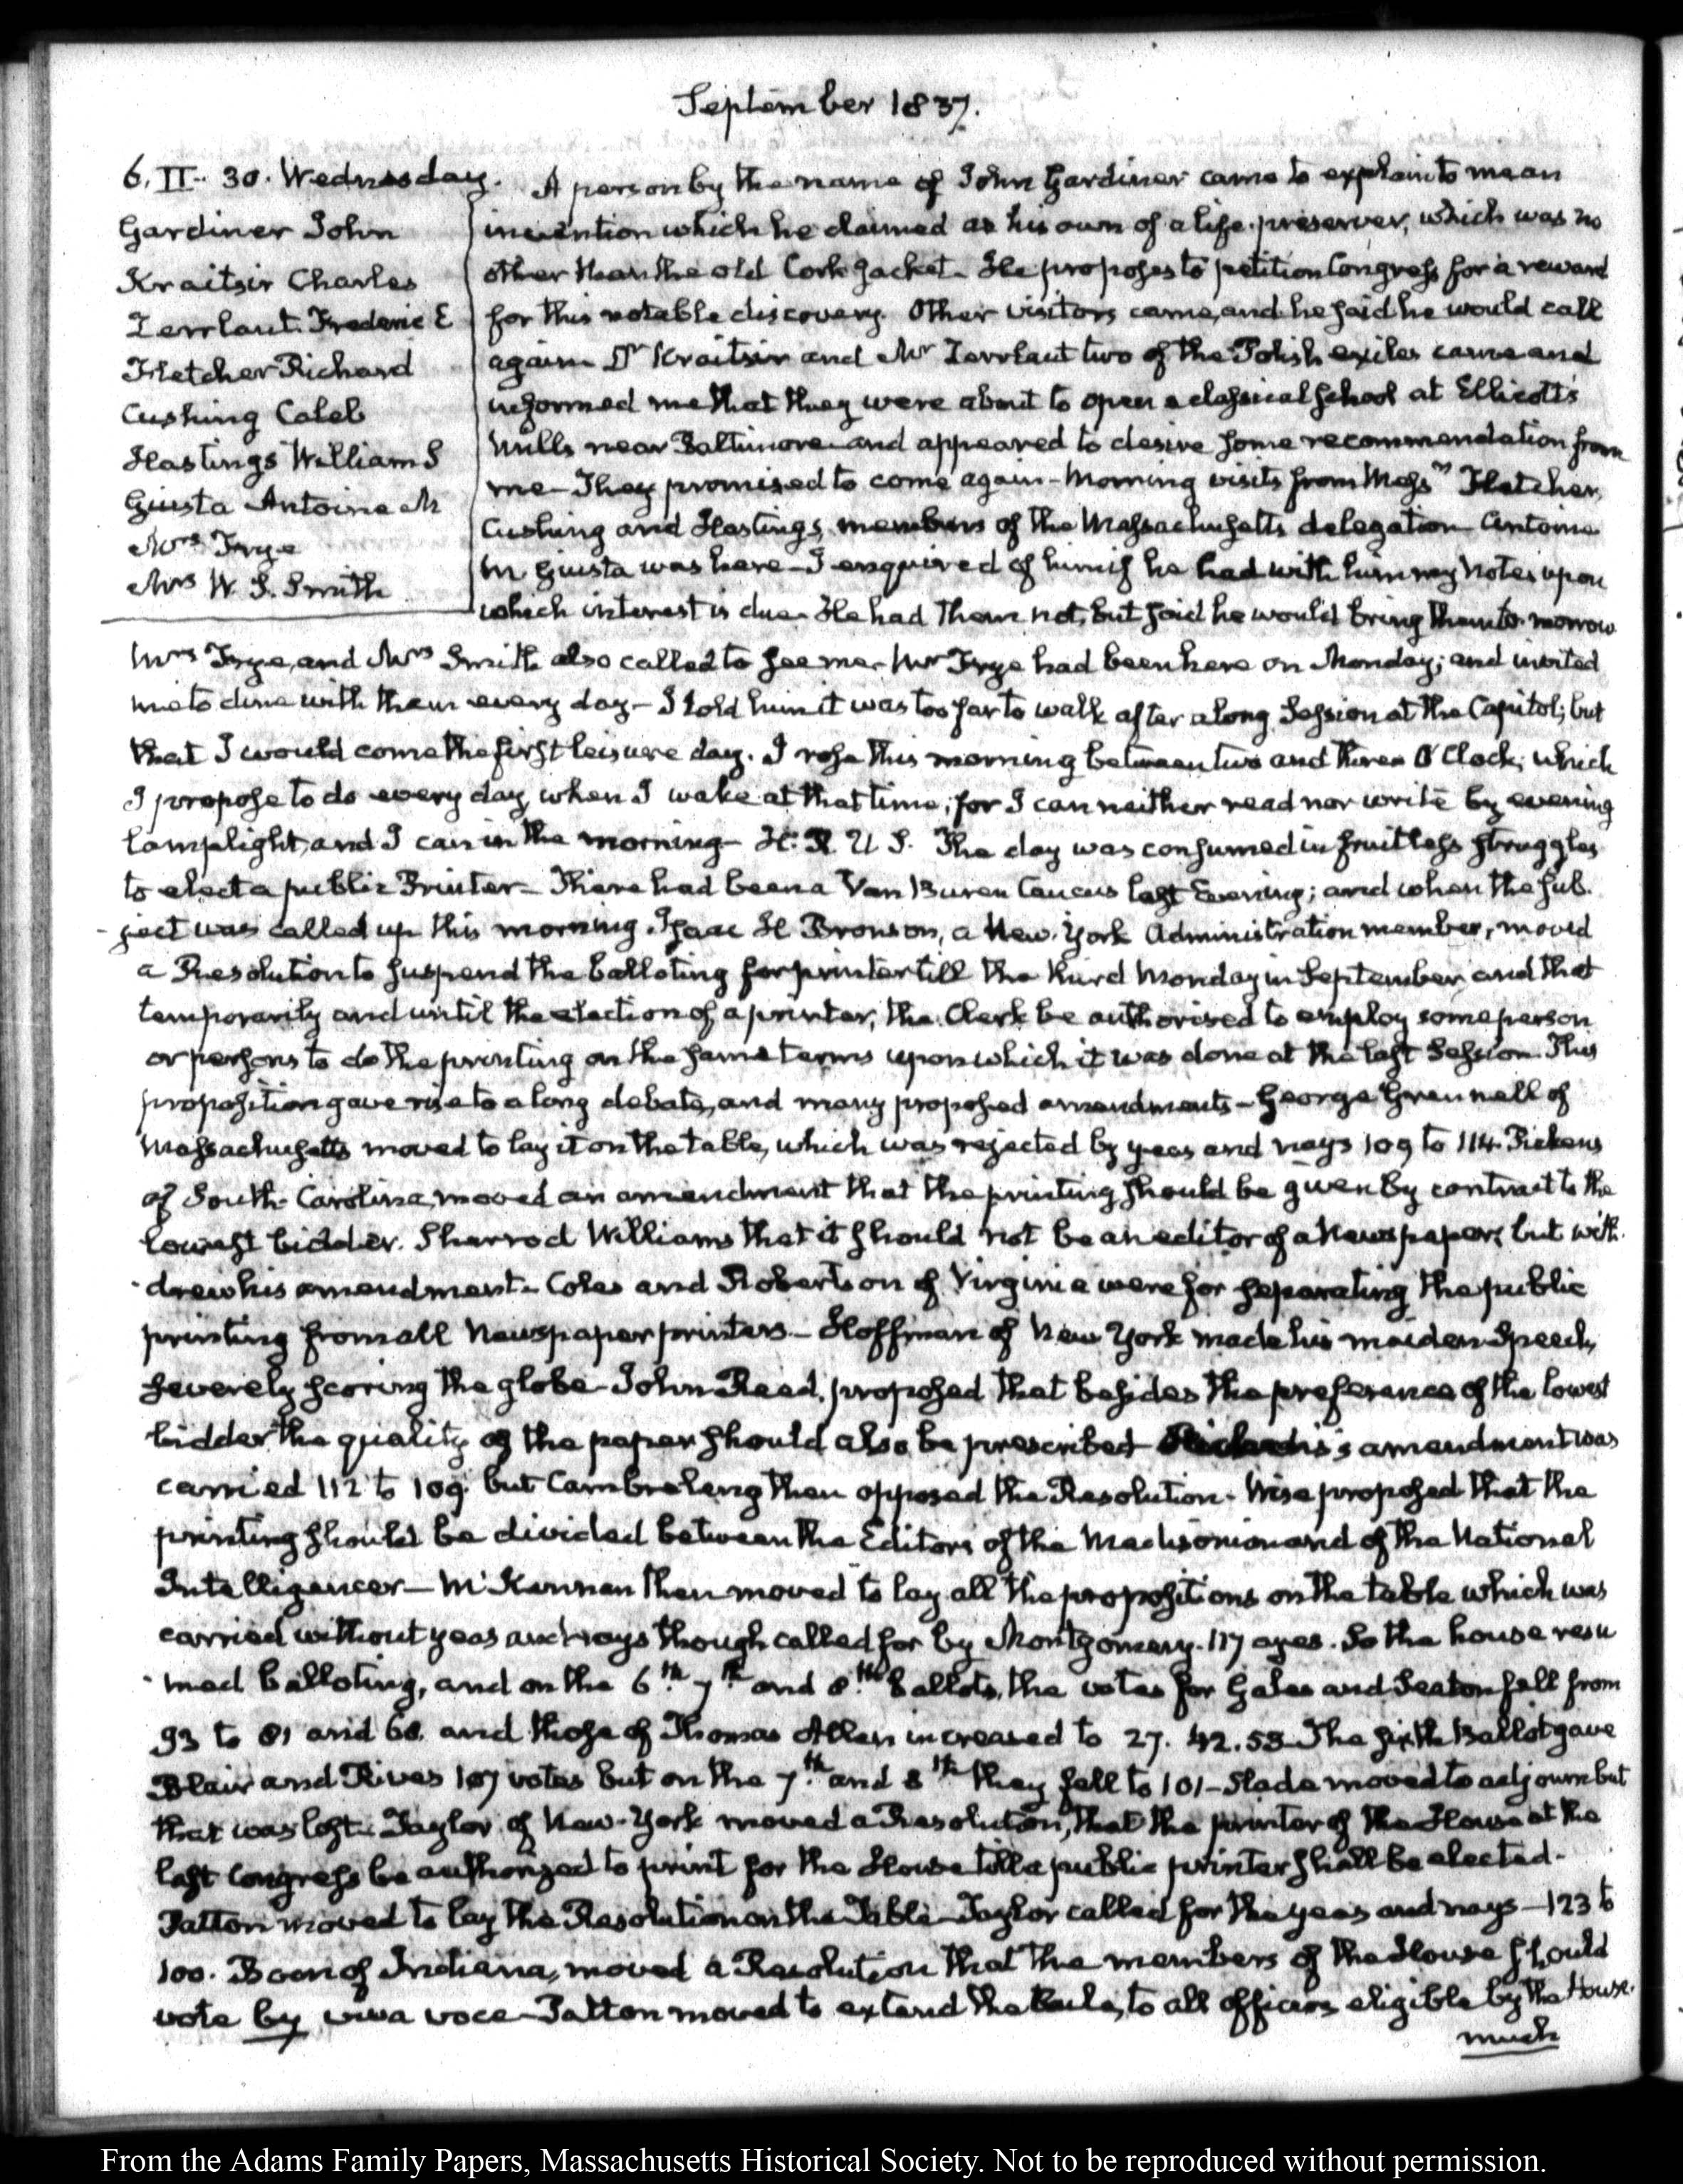 September 1837.
6. II.. 30. Wednesday.
Gardiner John
Kraitsir Charles
Zerrlaut. Frederic E
Fletcher Richard
Cushing Caleb
Hastings William S
Giusta Antoine M
Mrs Frye
Mrs W. S. Smith
A person by the name of John Gardiner came to explain to me an
invention which he claimed as his own of a life-preserver, which was no
other than the old Cork Jacket. He proposes to petition Congress for a reward
for this notable discovery. Other visitors came, and he said he would call
again. Dr Kraitsir and Mr Zerrlaut two of the Polish exiles came and
informed me that they were about to open a classical School at Ellicott's
Mills near Baltimore and appeared to desire some recommendation from
me— They promised to come again— Morning visits from Messrs Fletcher,
Cushing and Hastings, members of the Massachusetts delegation— Antoine
M Giusta was here— I enquired of him if he had with him my Notes upon
which interest is due. He had them not, but said he would bring them to-morrow
Mrs Frye, and Mrs Smith also called to see me. Mr Frye had been here on Monday; and invited
me to dine with them every day— I told him it was too far to walk after a long Session at the Capitol; but
that I would come the first leisure day. I rose this morning between two and three O'Clock; which
I propose to do every day, when I wake at that time; for I can neither read nor write by evening
lamplight, and I can in the morning— H. R. U S. The day was consumed in fruitless struggles
to elect a public Printer— There had been a Van Buren Caucus last Evening; and when the sub-
-ject was called up this morning. Isaac H Bronson, a New-York Administration member, moved
a Resolution to suspend the balloting for printer till the third Monday in September and that
temporarily and until the election of a printer, the Clerk be authorised to employ some person
or persons to do the printing on the same terms upon which it was done at the last Session. This
proposition gave rise to a long debate, and many proposed amendments— George Grennell of
Massachusetts moved to lay it on the table, which was rejected by yeas and nays 109 to 114. Pickens
of South-Carolina, moved an amendment that the printing should be given by contract to the
lowest bidder. Sherrod Williams that it should not be an editor of a Newspaper; but with-
-drew his amendment— Coles and Robertson of Virginia were for separating the public
printing from all Newspaper printers— Hoffman of New York made his maiden Speech,
severely scoring the globe— John Reed, proposed that besides the preference of the lowest
bidder the quality of the paper should also be prescribed— 's amendment was
carried 112 to 109. but Cambreleng then opposed the Resolution— Wise proposed that the
printing should be divided between the Editors of the Madisonian and of the National
Intelligencer— McKennan then moved to lay all the propositions on the table which was
carried without yeas and nays though called for by Montgomery. 117 ayes. So the house resu
-med balloting, and on the 6th. 7th and 8th. ballots, the votes for Gales and Seaton fell from
93 to 81 and 68. and those of Thomas Allen increased to 27. 42. 53— The sixth Ballot gave
Blair and Rives 107 votes but on the 7th. and 8th they fell to 101— Slade moved to adjourn but
that was lost— Taylor of New-York moved a Resolution, that the printer of the House at the
last Congress be authorized to print for the House till a public printer shall be elected—
Patton moved to lay the Resolution on the Table— Taylor called for the yeas and nays— 123 to
100. Boon of Indiana, moved a Resolution that the members of the House should
vote by viva voce— Patton moved to extend the Rule, to all officers eligible by the House.
much
From the Adams Family Papers, Massachusetts Historical Society. Not to be reproduced without permission.